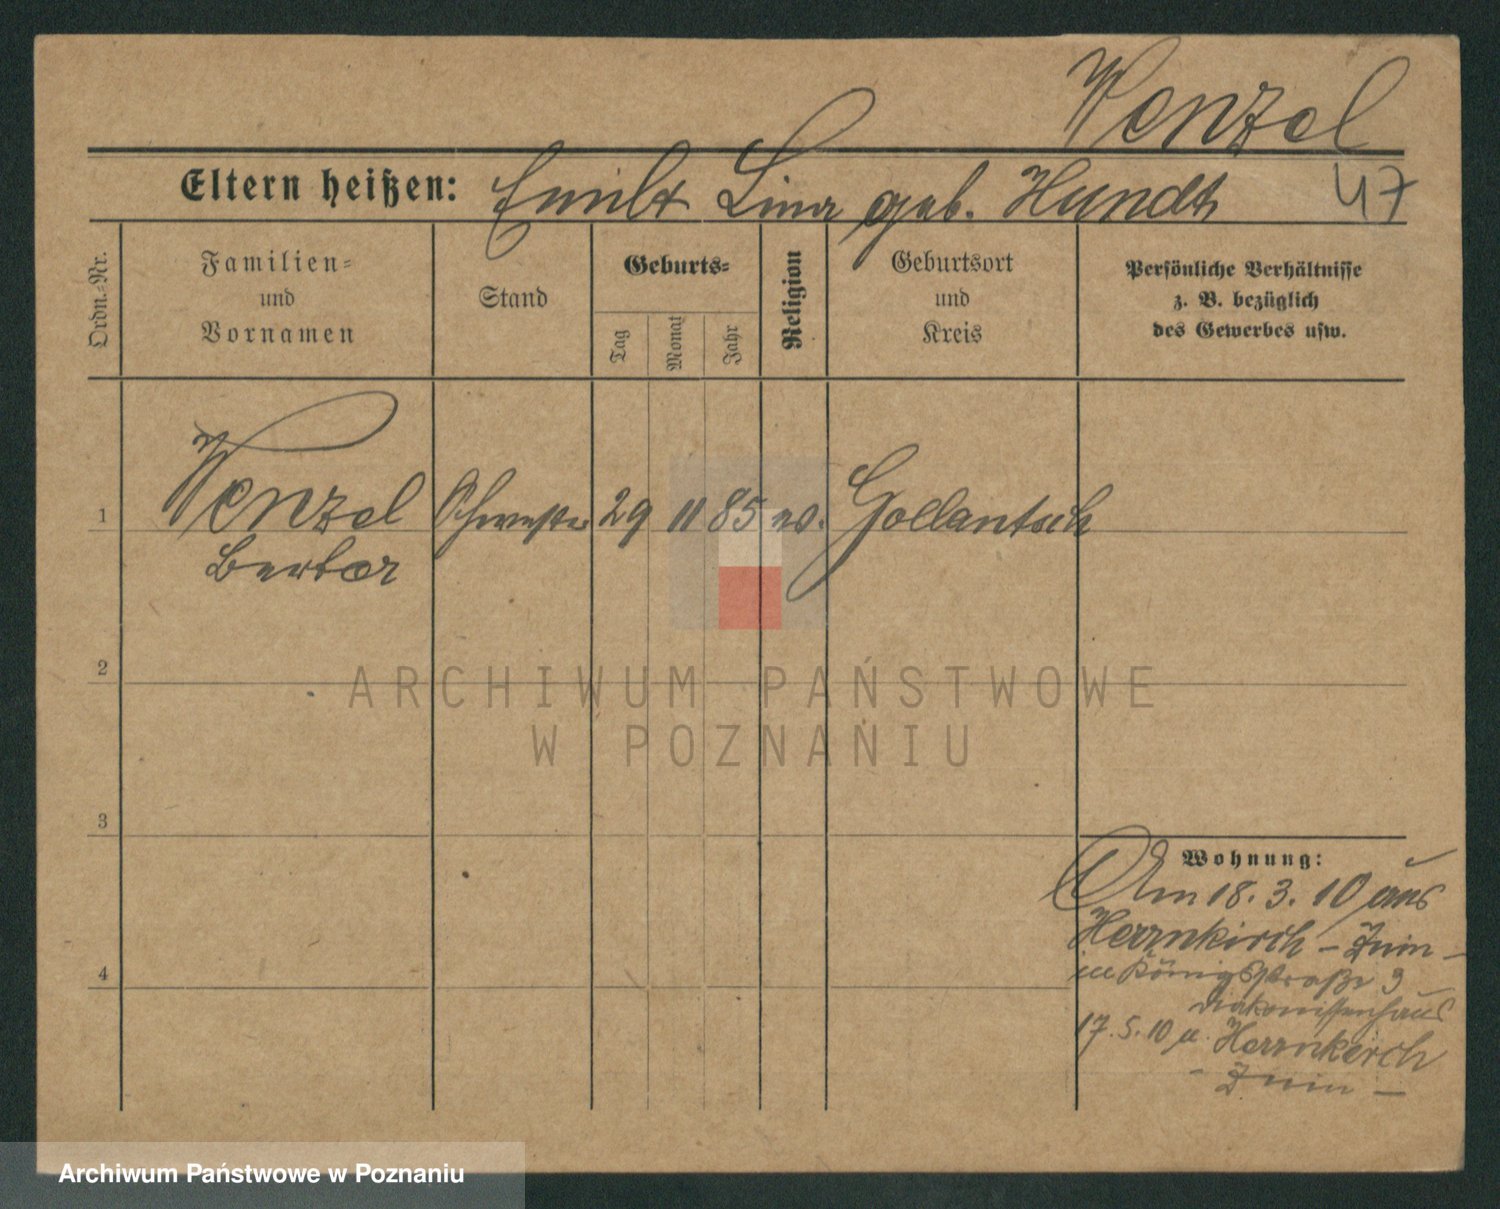 Wenzel
Eltern heißen: Emil & Lina geb. Hundt
47
Ordn.=Nr.
Familien=
und
Vornamen
Stand
Geburts=
Tag
Monat
Jahr
Religion
Geburtsort
und
Kreis
Persönliche Verhältnisse
z. B. bezüglich
des Gewerbes usw.
1
Wenzel Schwester 29 11 85 ev. Gollantsch
Berta
2
3
4
Wohnung:
Am 18.3.10 aus
Herrnkirch - Znin -
in Königstraße 9
Diakonissenhaus
17.5.10 n. Herrnkirch
- Znin -
ARCHIWUM PAŃSTWOWE
W POZNANIU
Archiwum Państwowe w Poznaniu